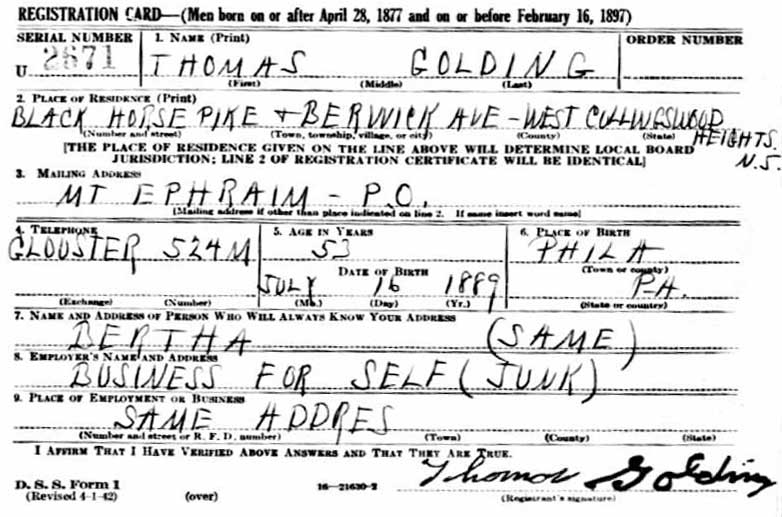 REGISTRATION CARD—(Men born on or after April 28, 1877 and on or before February 16, 1897)
SERIAL NUMBER 1. NAME (Print) ORDER NUMBER
U 2671 THOMAS GOLDING
(First) (Middle) (Last)
2. PLACE OF RESIDENCE (Print)
BLACK HORSE PIKE + BERWICK AVE - WEST COLLINGSWOOD
(Number and street) (Town, township, village, or city) (County) (State) HEIGHTS.
N.J.
[THE PLACE OF RESIDENCE GIVEN ON THE LINE ABOVE WILL DETERMINE LOCAL BOARD
JURISDICTION; LINE 2 OF REGISTRATION CERTIFICATE WILL BE IDENTICAL]
3. MAILING ADDRESS
MT EPHRAIM - P.O.
[Mailing address if other than place indicated on line 2. If same insert word same]
4. TELEPHONE 5. AGE IN YEARS 6. PLACE OF BIRTH
GLOUSTER 524M 53 PHILA
DATE OF BIRTH (Town or county)
JULY 16 1889 PA.
(Exchange) (Number) (Mo.) (Day) (Yr.) (State or country)
7. NAME AND ADDRESS OF PERSON WHO WILL ALWAYS KNOW YOUR ADDRESS
BERTHA (SAME)
8. EMPLOYER'S NAME AND ADDRESS
BUSINESS FOR SELF (JUNK)
9. PLACE OF EMPLOYMENT OR BUSINESS
SAME ADDRES
(Number and street or R. F. D. number) (Town) (County) (State)
I AFFIRM THAT I HAVE VERIFIED ABOVE ANSWERS AND THAT THEY ARE TRUE.
Thomas Golding
D. S. S. Form 1
(Revised 4-1-42) (over) 16—21630-2 (Registrant's signature)